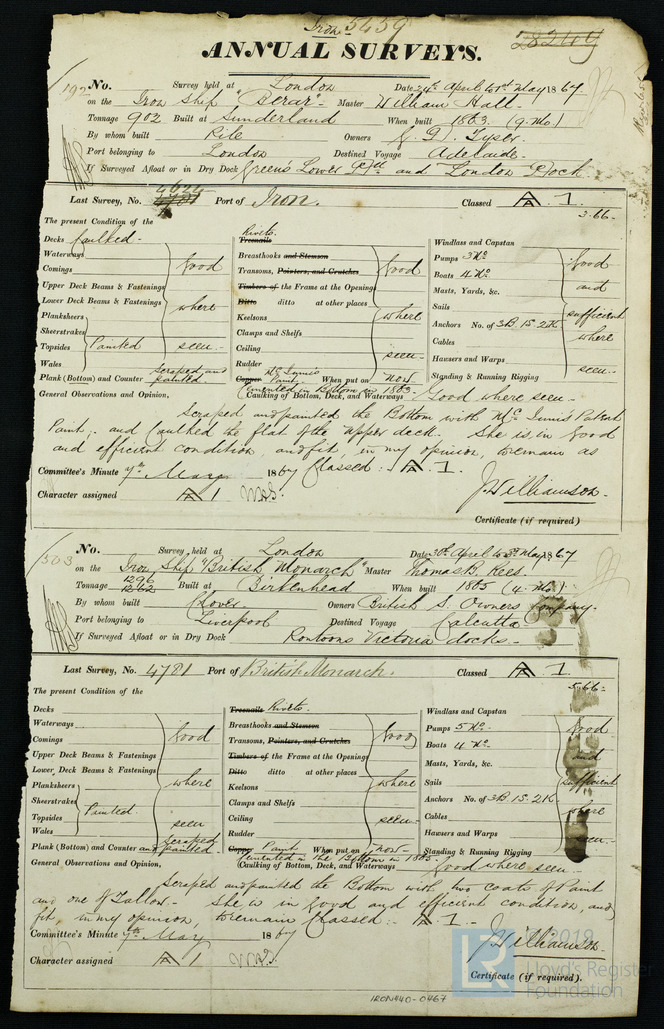 Iron 5459
28249
ANNUAL SURVEYS.
192 No. Survey held at London Date 24th April to 1st May 1867
on the Iron Ship "Berar" Master William Hall
Tonnage 902 Built at Sunderland When built 1863 (9. Mo.)
By whom built Pile Owners G. D. Tyser
Port belonging to London Destined Voyage Adelaide
If Surveyed Afloat or in Dry Dock Green's Lower and London Dock
Last Survey, No. 4624 Port of Iron. Classed A 1
3.66
The present Condition of the
Decks Caulked
Waterways
Comings
Upper Deck Beams & Fastenings
Lower Deck Beams & Fastenings
Planksheers
Sheerstrakes
Topsides Painted
Wales
Plank (Bottom) and Counter scraped and painted
good where seen
Rivets
Treenails
Breasthooks and Stemson
Transoms, Pointers, and Crutches
Timbers of the Frame at the Opening
Ditto ditto at other places
Keelsons
Clamps and Shelfs
Ceiling
Rudder
Copper Paint When put on now
good where seen
Windlass and Capstan
Pumps 3 No
Boats 4 No
Masts, Yards, &c.
Sails
Anchors No. of 3B. 1S. 2K
Cables
Hawsers and Warps
Standing & Running Rigging
good and sufficient where seen
Cemented in Bottom in 1863
General Observations and Opinion, Caulking of Bottom, Deck, and Waterways Good where seen
scraped and painted the Bottom with Mc Innis's Patent
Paint, and Caulked the flat of the upper deck. She is in good
and efficient condition, and fit, in my opinion, to remain as
Committee's Minute 7th May 1867 Classed: A 1.
Character assigned A 1
J. Williamson
Certificate (if required)
No. Survey held at London Date 30th April to 3rd May 1867
on the Iron Ship "British Monarch" Master Thomas B. Rees.
1296
Tonnage 1262 Built at Birkenhead When built 1865 (4. Mo.)
By whom built Clover Owners British S. Owners Company.
Port belonging to Liverpool Destined Voyage Calcutta
If Surveyed Afloat or in Dry Dock Pontoons Victoria docks
Last Survey, No. 4781 Port of British Monarch. Classed A 1
5.66
The present Condition of the
Decks
Waterways
Comings
Upper Deck Beams & Fastenings
Lower Deck Beams & Fastenings
Planksheers
Sheerstrakes
Topsides Painted
Wales
Plank (Bottom) and Counter scraped and painted
good where seen
Treenails Rivets
Breasthooks and Stemson
Transoms, Pointers, and Crutches
Timbers of the Frame at the Opening
Ditto ditto at other places
Keelsons
Clamps and Shelfs
Ceiling
Rudder
Copper Paint When put on now
good where seen
Windlass and Capstan
Pumps 5 No
Boats 4 No
Masts, Yards, &c.
Sails
Anchors No. of 3B. 1S. 2K
Cables
Hawsers and Warps
Standing & Running Rigging
good and sufficient where seen
Cemented in the Bottom in 1865
General Observations and Opinion, Caulking of Bottom, Deck, and Waterways good where seen
scraped and painted the Bottom with two coats of Paint
and one of Tallow. She is in good and efficient condition, and
fit, in my opinion, to remain Classed: A 1.
Committee's Minute 7th May 1867
Character assigned A 1
J. Williamson
Certificate (if required).
© 2019
LR Lloyd's Register
Foundation
IRON440-0467